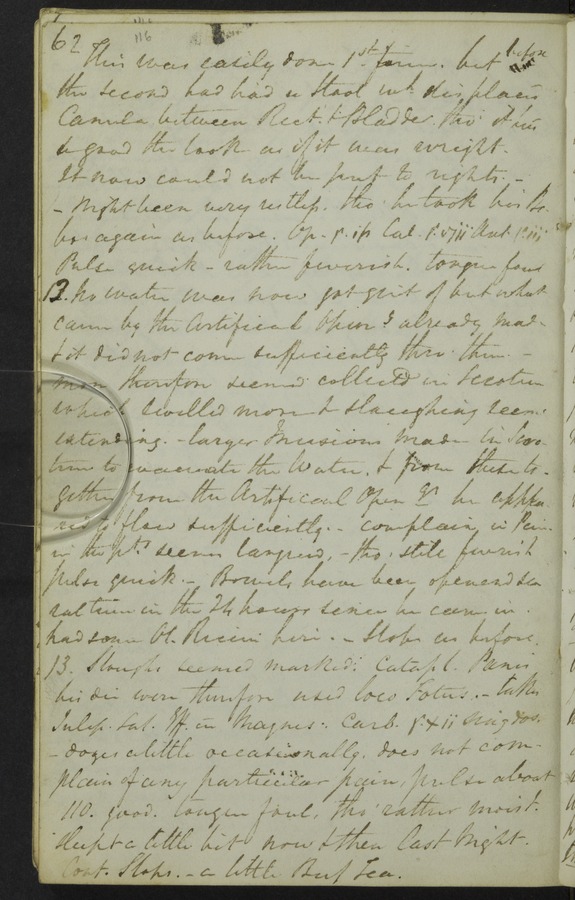 62
116
This was easily done 1st time. but before
the second had had a Stool wh. displaced
Canula between Rect. & Bladder. tho' it was
a good the look as if it was wright.
It now could not be put to rights. -
- Night been very restless. tho' he took his
again as before. Op. gr. iss Cal. gr. viii Ant. gr. iii
Pulse quick - rather feverish. tongue foul
12. No water was now got quit of but what
came by the Artificial Open.g already made
& it did not come sufficiently thro' them. -
more therefore seemed collected in Scrotum
which swelled more & sloughing seem.
extending. - larger Incisions made in Scro
tum to evacuate the Water. & from these to-
gether from the Artificial Open.gs he appea
red to flow sufficiently. - complains in Pain
in the pts. seems languid, - tho' still feverish
pulse quick -. Bowels have been opened sev
ral times in the 24 hours since he came in.
had some Ol. Ricini here. - Slops as before.
13. Sloughs seemed marked: Catapl. Panis
were therefore used loco Fotus. - takes
Julep. Sal. Eff. cu Magnes: Carb. gr. xii sing dos.
- dozes a little occasionally. does not com-
plain of any particular pain, pulse about
110. good. tongue foul, tho' rather moist.
slept a little bit now & then last Night.
Cont. Slops. - a little Beef Tea.